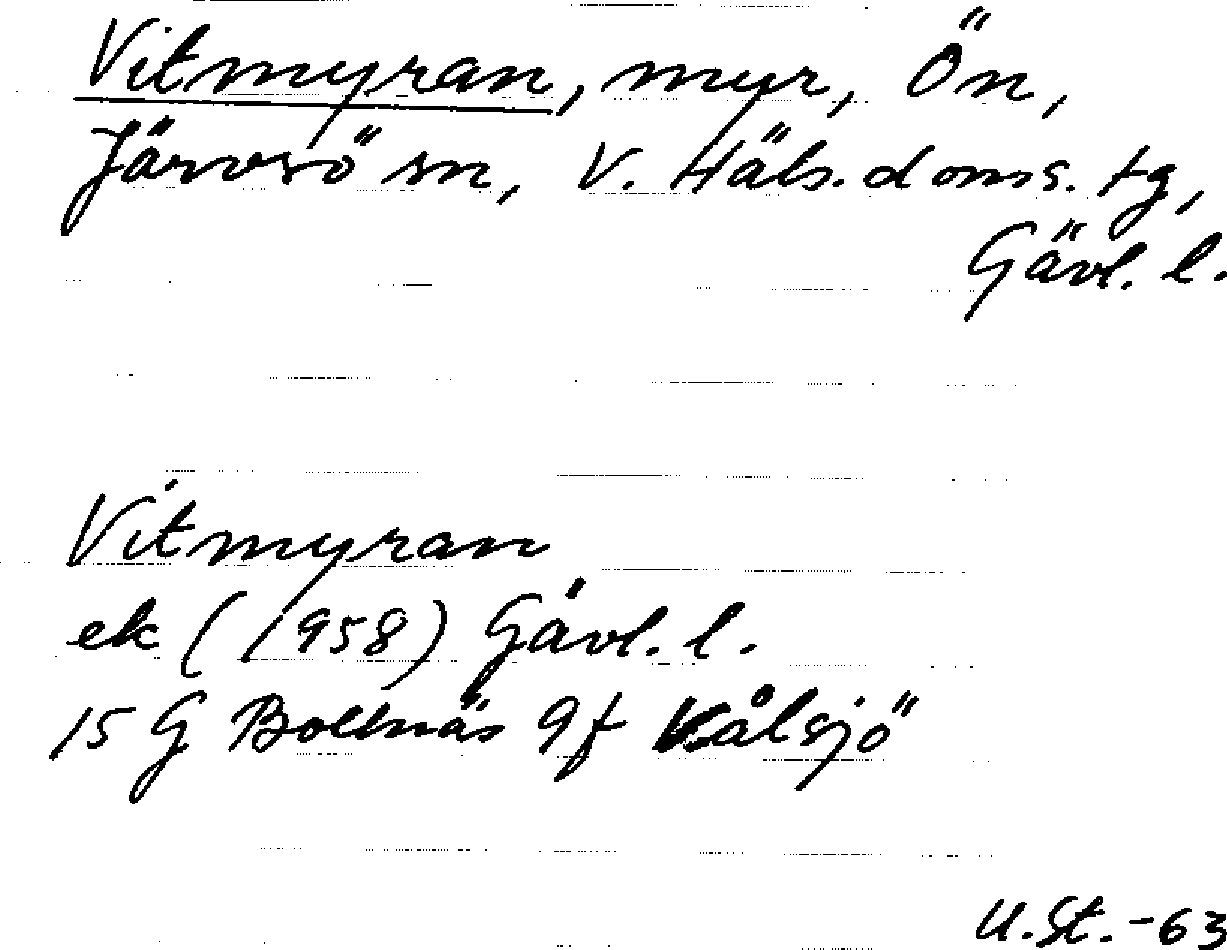 Vitmyran, myr, Ön,
Järvsö sn, V. Häls. doms. tg,
Gävl. l.
Vitmyran
ek (1958) Gävl. l.
15 G Bollnäs 9f Kålsjö
U.St.-63